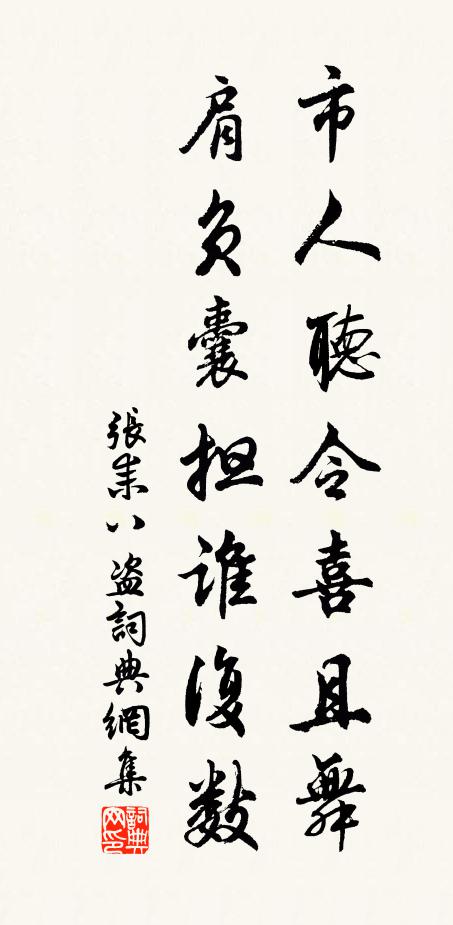 市人聽令喜且舞
肩負囊担誰復数
張耒八盜詞典網集
詞典网印